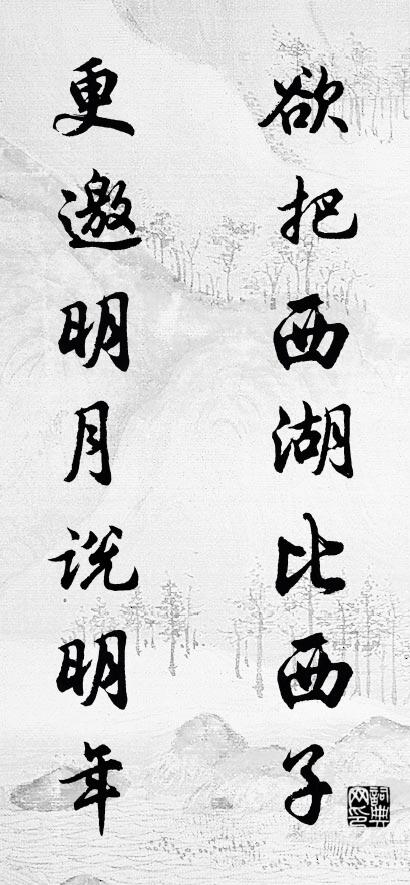 欲把西湖比西子
更邀明月说明年
詞典网印